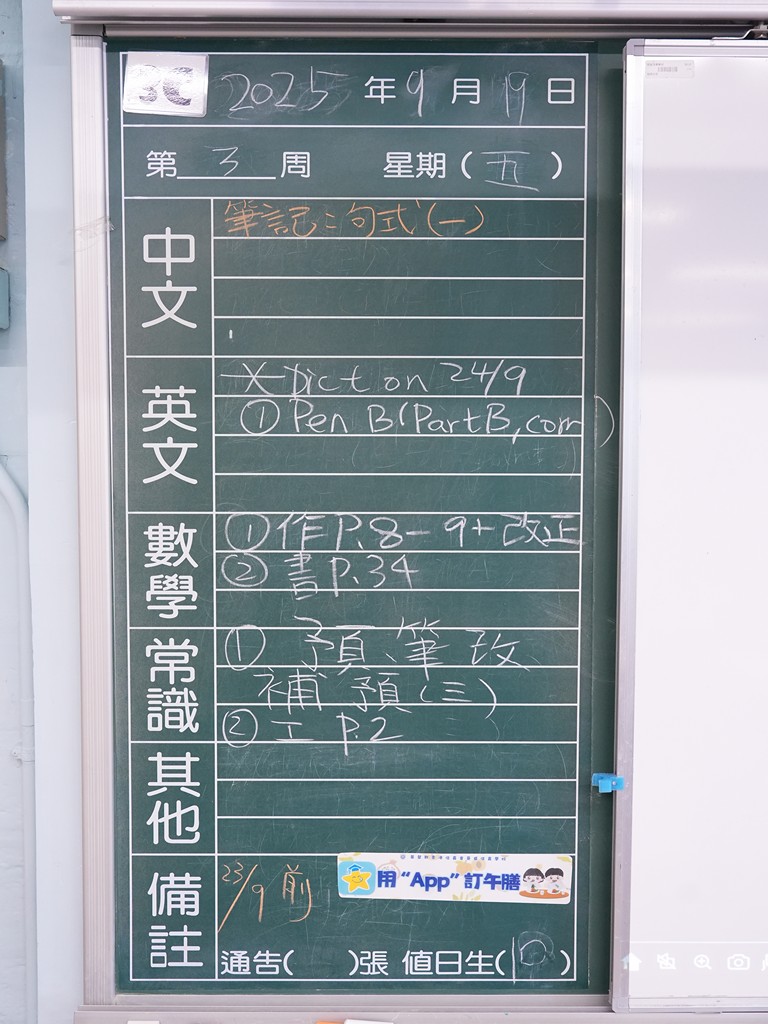 3C 2025年9月19日
第3周 星期(五)
中文
筆記:句式(一)
英文
X Dict on 24/9
① Pen B(Part B, corr)
數學
① 作 P.8-9+改正
② 書 P.34
常識
① 預、筆 改
補 預(三)
② 工 P.2
其他
備註
23/9 前
用“App”訂午膳
通告( )張 值日生( )